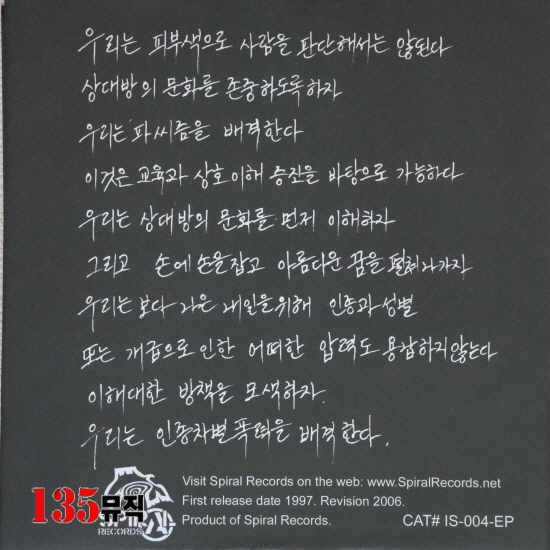 우리는 피부색으로 사람을 판단해서는 않된다
상대방의 문화를 존중하도록하자
우리는 파씨즘을 배격한다
이것은 교육과 상호이해 증진을 바탕으로 가능하다
우리는 상대방의 문화를 먼저 이해하자
그리고 손에 손을잡고 아름다운 꿈을 펼쳐나가자
우리는 보다 나은 내일을위해 인종과성별
또는 계급으로인한 어떠한 압력도 용납하지않는다
이해대한 방책을 모색하자.
우리는 인종차별폭력을 배격한다.
Visit Spiral Records on the web: www.SpiralRecords.net
First release date 1997. Revision 2006.
Product of Spiral Records. CAT# IS-004-EP
135뮤직
RECORDS